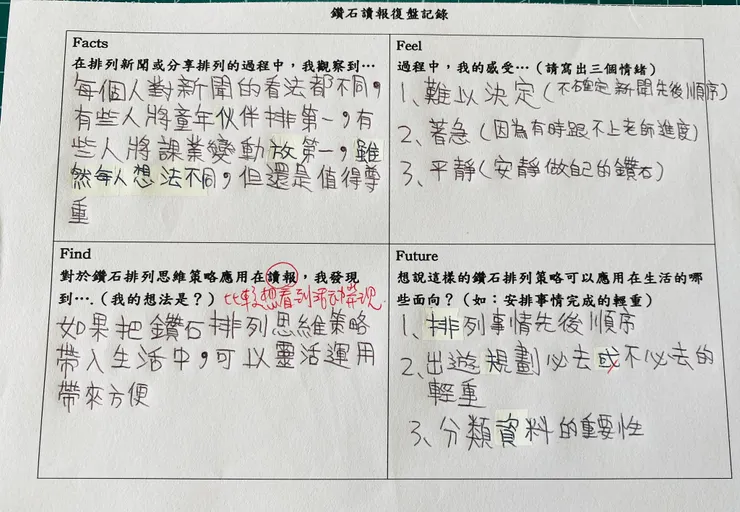 鑽石讀報復盤記錄
Facts
在排列新聞或分享排列的過程中，我觀察到…
每個人對新聞的看法都不同，
有些人將童年伙伴排第一，有
些人將課業變動放第一，雖
然每人想法不同，但還是值得尊
重
Feel
過程中，我的感受…（請寫出三個情緒）
1、難以決定(不確定新聞先後順序)
2、著急(因為有時跟不上老師進度)
3、平靜(安靜做自己的鑽石)
Find
對於鑽石排列思維策略應用在讀報，我發現
到….（我的想法是？）
比較想看到
如果把鑽石排列思維策略
帶入生活中，可以靈活運用
帶來方便
Future
想說這樣的鑽石排列策略可以應用在生活的哪
些面向？（如：安排事情完成的輕重）
1、排列事情先後順序
2、出遊規劃必去或不必去的
輕重
3、分類資料的重要性